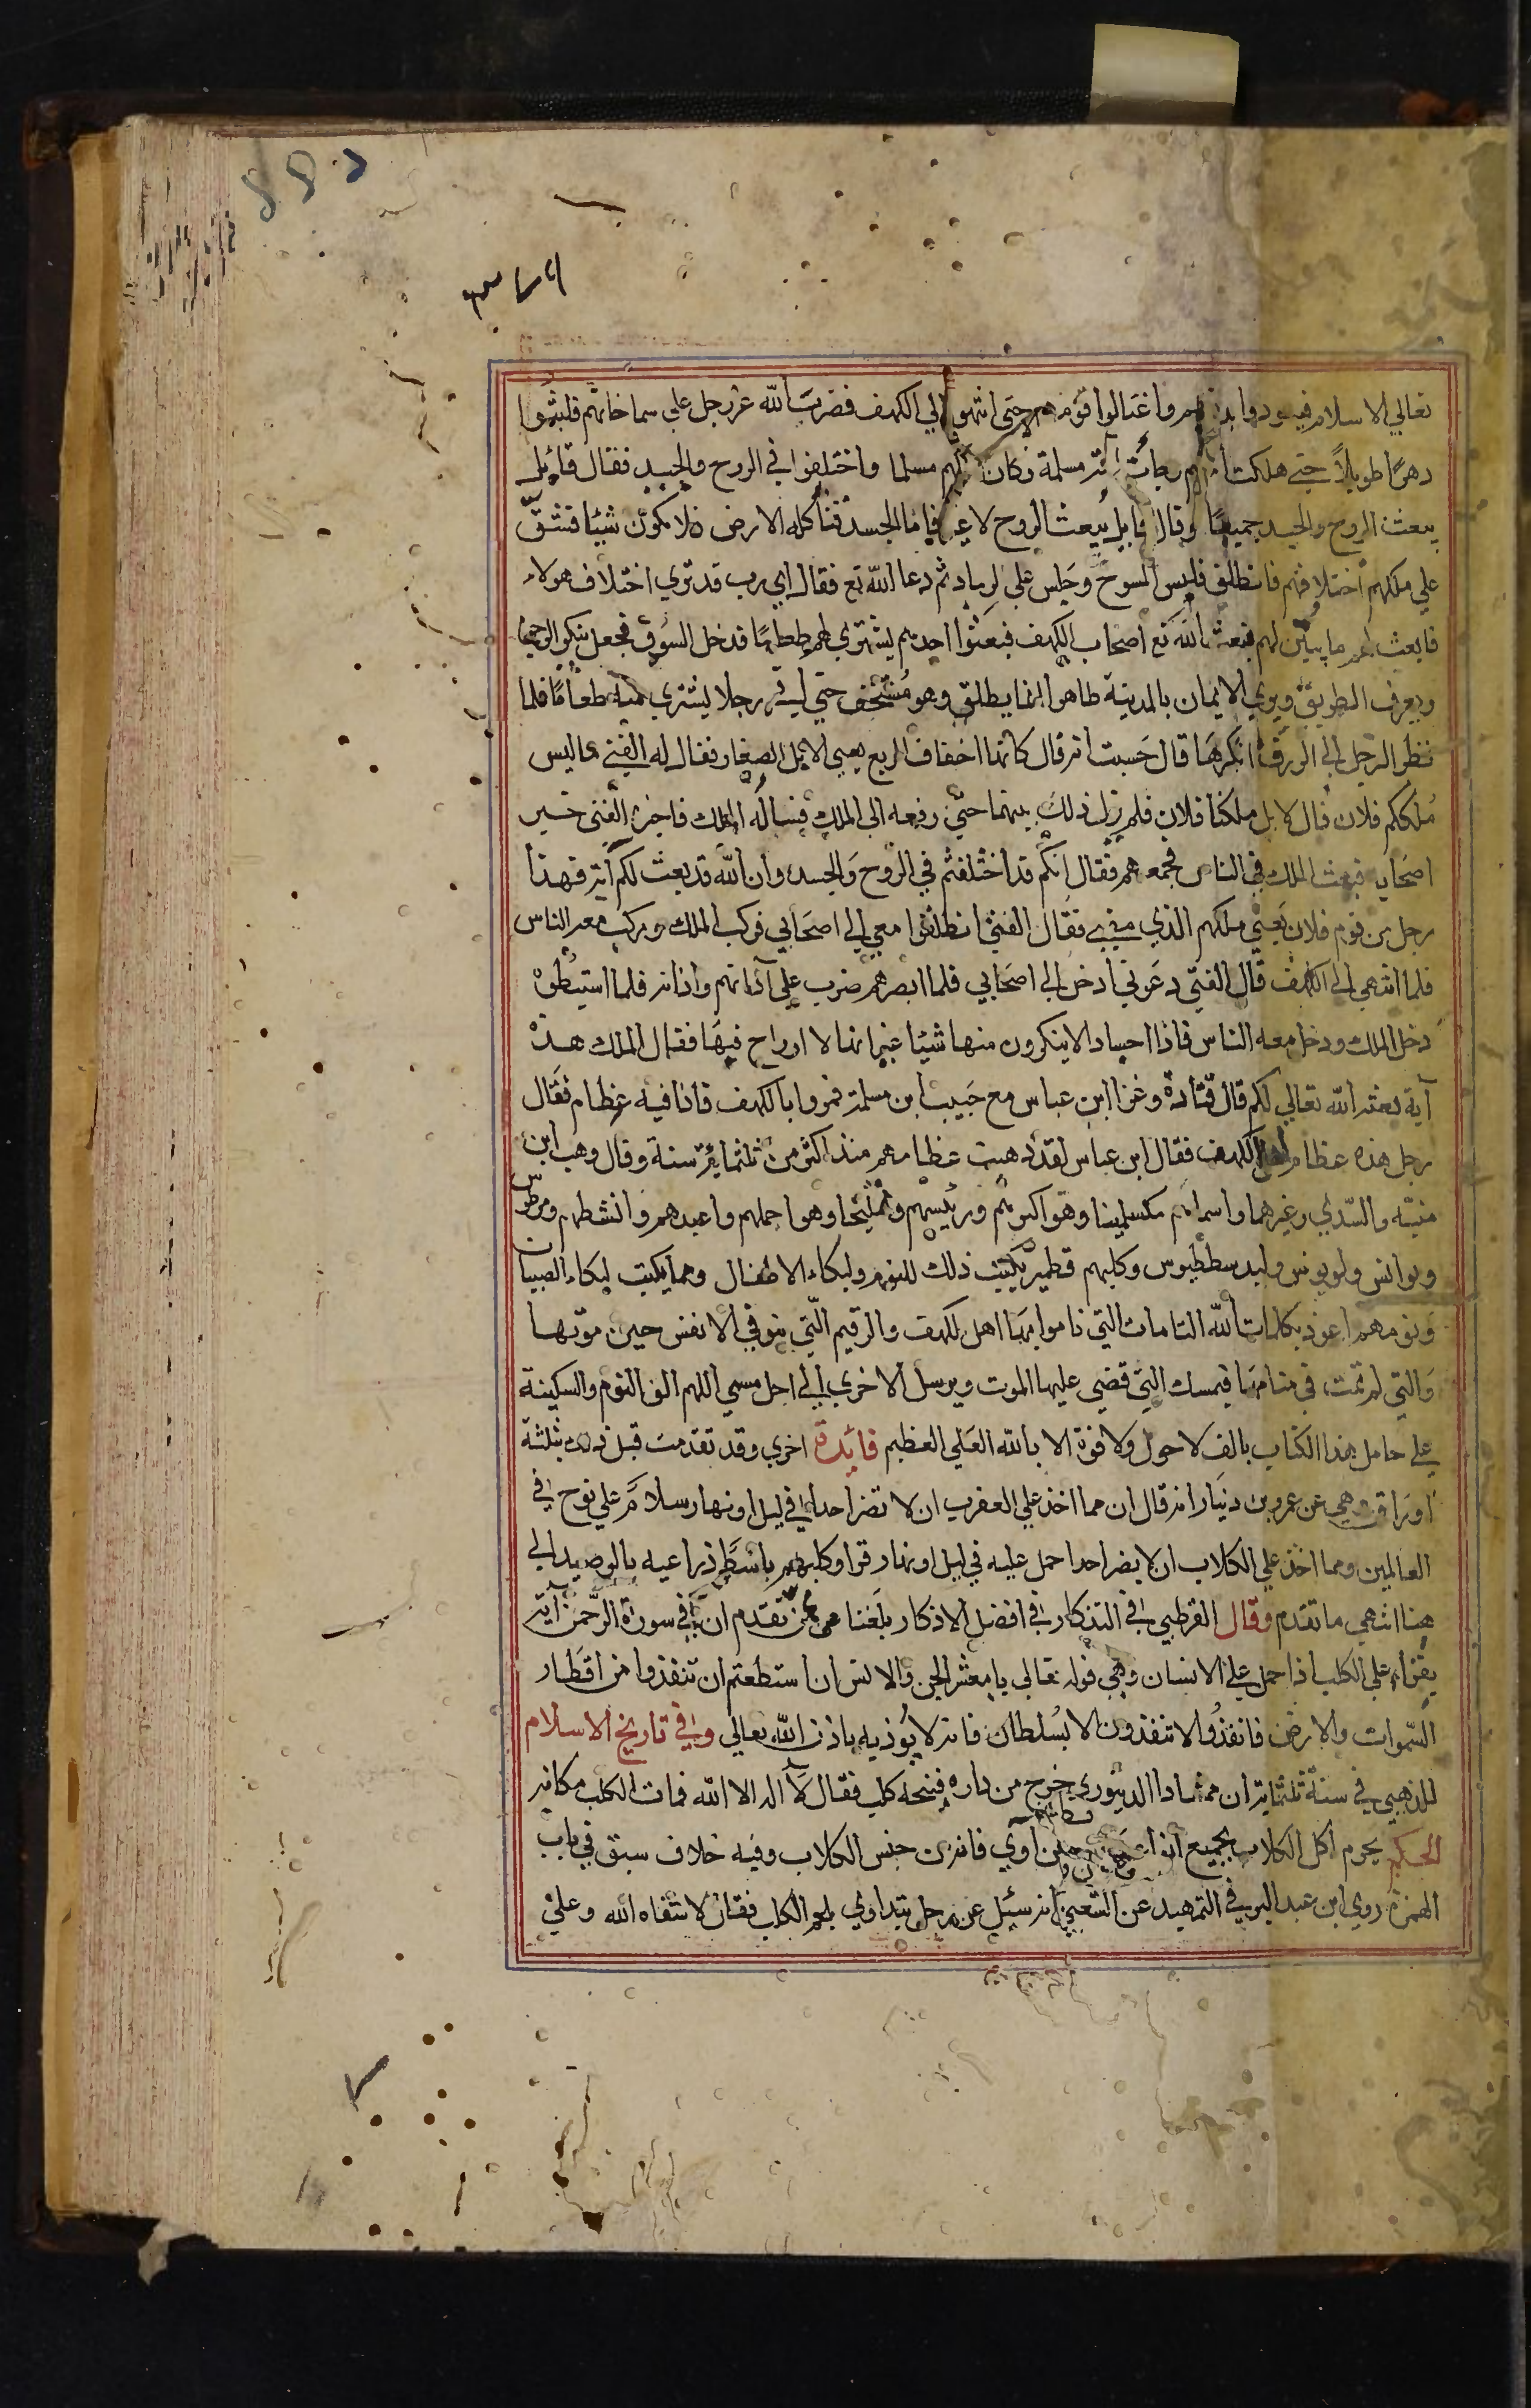 ٣٧٦
تعالي الاسلام فتعوذوا بدينهم واعتزلوا قومهم حتى انتهوا الي الكهف فضرب الله عز وجل علي سماخاتهم فلبثوا
دهرًا طويلاً حتي هلكت امتهم وجائت امة مسلمة وكان ملكهم مسلما واختلفوا في الروح والجسد فقال قائل
يبعث الروح والجسد جميعًا وقال قايل يبعث الروح لا غير فاما الجسد فتأكله الارض فلا يكون شيئا فشقّ
علي ملكهم اختلافهم فانطلق فلبس المسوح وجلس علي الرماد ثم دعا الله تع فقال اي رب قد تري اختلاف هولاء
فابعث لهم ما يبيّن لهم فبعث الله تع اصحاب الكهف فبعثوا احدهم يشتري لهم طعامًا فدخل السوق فجعل ينكر الوجوه
ويعرف الطريق ويري الايمان بالمدينة ظاهرا فانطلق وهو مستخف حتي اتي رجلا يشتري منه طعامًا فلما
نظر الرجل الي الورق انكرها قال حَسبت انه قال كانها اخفاف الربع يعني الابل الصغار فقال له الفتي اليس
مَلككم فلان قال لا بل ملكنا فلان فلم يزل ذلك بينهما حتّي رفعه الى الملك فساله الملك فاخبره الفتى خبر
اصحابه فبعث الملك في الناس فجمعهم فقال انكم قد اختلفتم في الروح والجسد وان الله قد بعث لكم آية فهذا
رجل من قوم فلان يعني ملكهم الذي مضي فقال الفتي انطلقوا معي الي اصحابي فركب الملك وركب معه الناس
فلما انتهي الي الكهف قال الفتي دعوني ادخل الي اصحابي فلما ابصرهم ضرب علي آذانهم واذانه فلما استبطؤه
دخل الملك ودخل معه الناس فاذا اجساد لا ينكرون منها شيئا غير انها لا ارواح فيها فقال الملك هذه
آية بعثها الله تعالي لكم قال قتادة وغزا ابن عباس مع حبيب ابن مسلمة فمروا بالكهف فاذا فيه عظام فقال
رجل هذه عظام اهل الكهف فقال ابن عباس لقد ذهبت عظامهم منذ اكثر من ثلثمائة سنة وقال وهب ابن
منبّه والسّدي وغيرهما واسماؤهم مكسلمينا وهو اكبرهم ورئيسهم ويمليخا وهو اجملهم واعبدهم وانشطهم ومرطوس
ونوانس وكلبهم قطمير يكتب ذلك للنوم ولبكاء الاطفال ومما يكتب لبكاء الصبيان
ونومهم اعوذ بكلمات الله التامات التي ناموا بها اهل الكهف والرقيم التي يتوفي الانفس حين موتها
والتي لم تمت في منامها فيمسك التي قضي عليها الموت ويرسل الاخري الي اجل مسمي اللهم الق النوم والسكينة
علي حامل هذا الكتاب بالف لا حول ولا قوة الا بالله العلي العظيم فائدة اخري وقد تقدمت قبل ذلك بثلثة
اوراق وهي عن عمرو بن دينار انه قال ان مما اخذ علي العقرب ان لا تضر احدا في ليل او نهار سلامٌ علي نوح في
العالمين ومما اخذ علي الكلاب ان لا يضر احدا حمل عليه في ليل او نهار قرا وكلبهم باسط ذراعيه بالوصيد الي
هنا انتهي ما تقدم وقال القرطبي في التذكار في افضل الاذكار بلغنا عمن تقدم ان في سورة الرحمن آية
يقراء علي الكلب اذا حمل علي الانسان وهي قوله تعالي يا معشر الجن والانس ان استطعتم ان تنفذوا من اقطار
السّموات والارض فانفذوا لا تنفذون الا بسُلطان فانه لا يُوذيه باذن الله تعالي وفي تاريخ الاسلام
للذهبي في سنة ثلثماية ان ممشادا الدينوري خرج من داره فنبحه كلب فقال لا اله الا الله فمات الكلب مكانه
الحكم يحرم اكل الكلاب بجميع انواعها ابن اوي فانه من جنس الكلاب وفيه خلاف سبق في باب
الهمزة روي ابن عبد البر في التمهيد عن الشعبي انه سئيل عن رجل يتداوي بلحم الكلب فقال لا شفاه الله وعلي